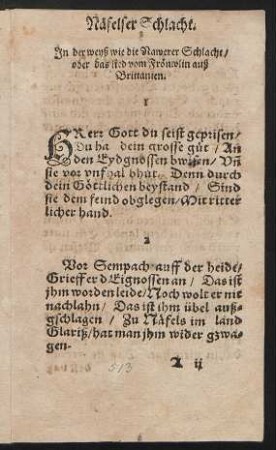 Näfelser Schlacht.
In der weyß wie die Nawerer Schlacht/
oder das lied vom Fröuwlin auß
Brittanien.
1
HErr Gott du seist geprisen/
Du ha dein grosse güt / An
den Eydgnossen bwisen / Vñ
sie vor vnfal bhüt. Denn durch
dein Göttlichen beystand / Sind
sie dem feind obglegen / Mit ritter
licher hand.
2
Vor Sempach auff der heide /
Grieff er d Eignossen an / Das ist
jhm worden leide / Noch wolt er nit
nachlahn / Das ist ihm übel auß-
gschlagen / Zu Näfels im land
Glariß / hat man jhm wider gzwa-
gen.
A ij
513